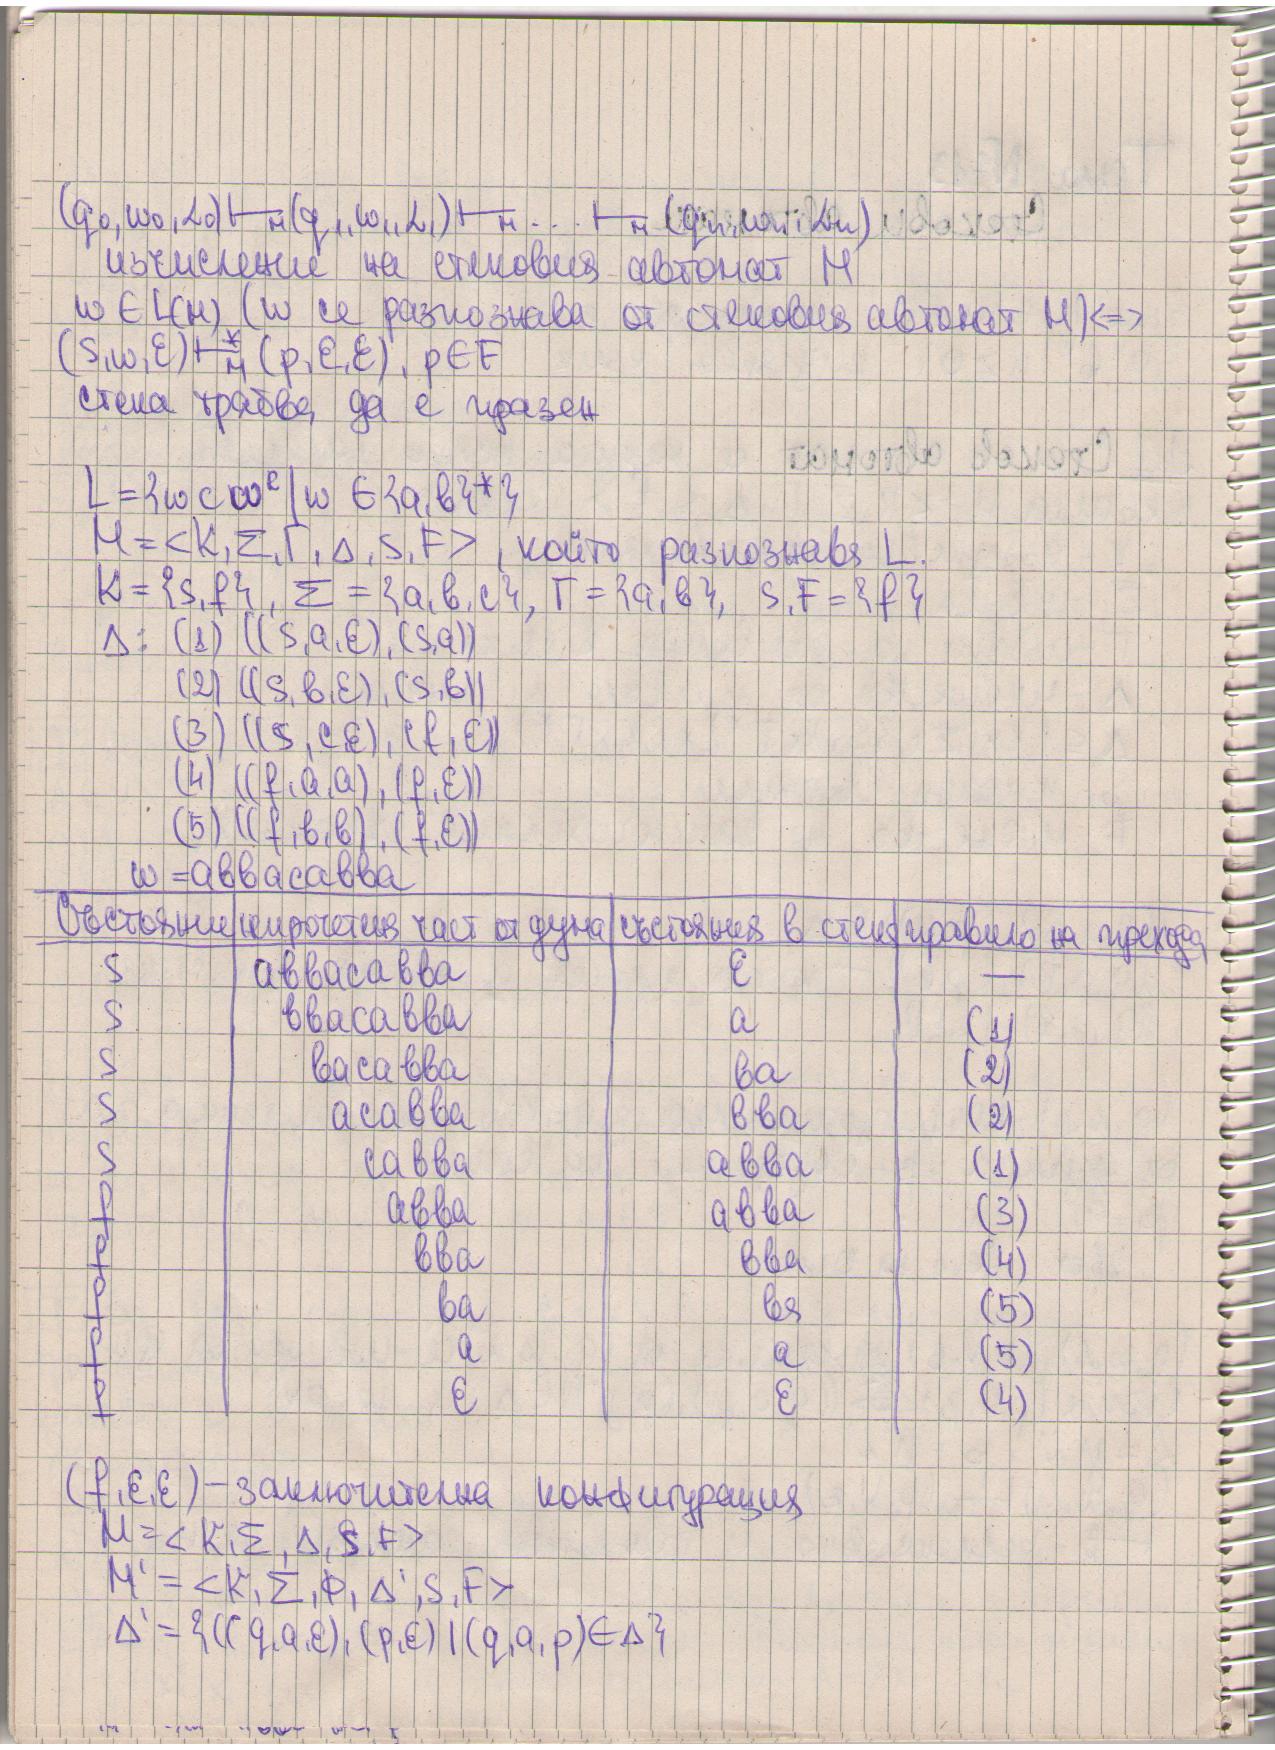 (q₀,w₀,α₀)⊢ₘ(q₁,w₁,α₁)⊢ₘ...⊢ₘ(qₙ,wₙ,αₙ)
изчисление на стековия автомат M
w ∈ L(M) (w се разпознава от стековия автомат M) <=>
(s,w,ε)⊢*ₘ(p,ε,ε), p∈F
стека трябва да е празен
L={wcwᴿ|w∈{a,b}*}
M=<K,Σ,Γ,Δ,s,F>, който разпознава L.
K={s,f}, Σ={a,b,c}, Γ={a,b}, s,F={f}
Δ: (1) ((s,a,ε),(s,a))
(2) ((s,b,ε),(s,b))
(3) ((s,c,ε),(f,ε))
(4) ((f,a,a),(f,ε))
(5) ((f,b,b),(f,ε))
w=abbacabba
Състояние непрочетия част от дума състояния в стек правило на прехода
s abbacabba ε —
s bbacabba a (1)
s bacabba ba (2)
s acabba bba (2)
s cabba abba (1)
f abba abba (3)
f bba bba (4)
f ba ba (5)
f a a (5)
f ε ε (4)
(f,ε,ε)-заключителна конфигурация
M=<K,Σ,Δ,s,F>
M'=<K,Σ,Φ,Δ',s,F>
Δ'={((q,a,ε),(p,ε)|(q,a,p)∈Δ}